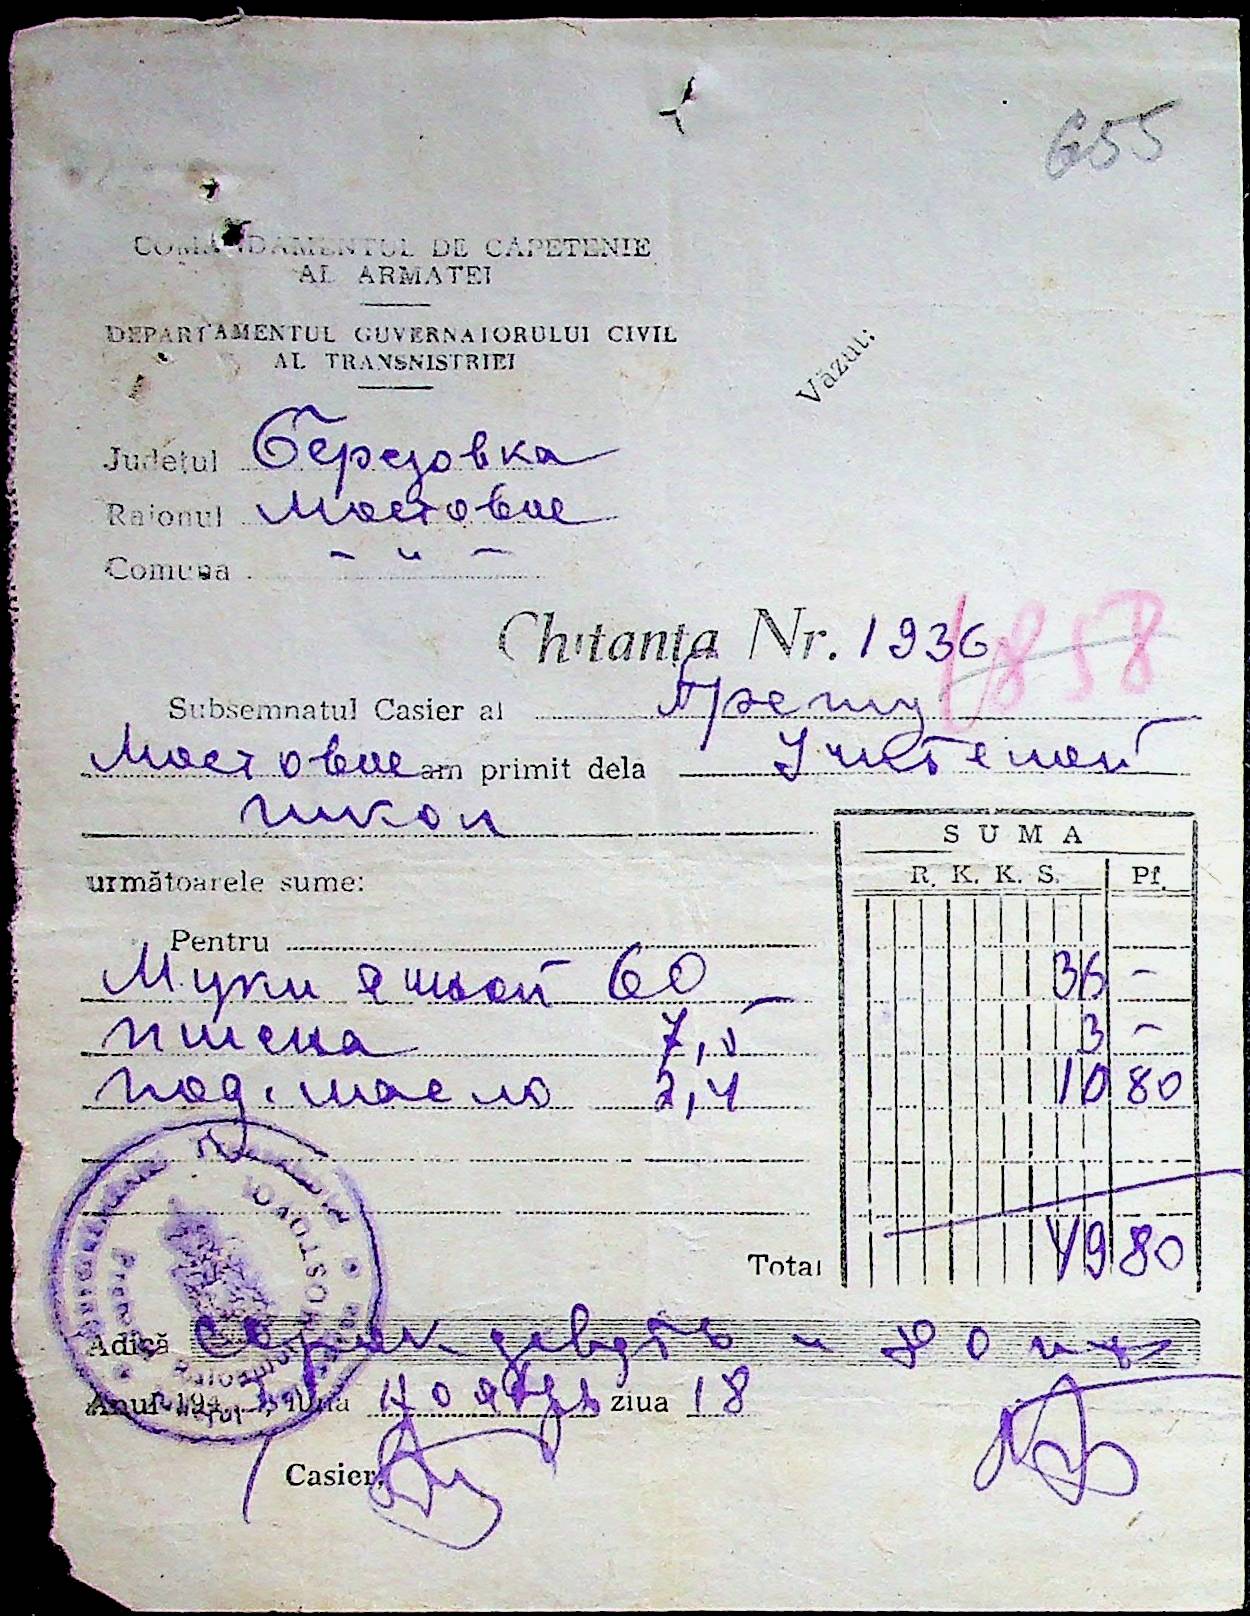 655
COMANDAMENTUL DE CAPETENIE
AL ARMATEI
DEPARTAMENTUL GUVERNATORULUI CIVIL
AL TRANSNISTRIEI
Văzut:
Județul Березовка
Raionul Мостовое
Comuna – „ –
Chitanța Nr. 1936 1858
Subsemnatul Casier al
Мостовое am primit dela
школ
următoarele sume:
SUMA
R. K. K. S. Pf.
Pentru
Муки ячной 60 36 –
пшена 7,5 3 –
под. масло 2,4 10 80
Total 49 80
Adică Сорок девять и 80 пф
Anul 194 luna ноябрь ziua 18
Casier,
MOSTOVOI